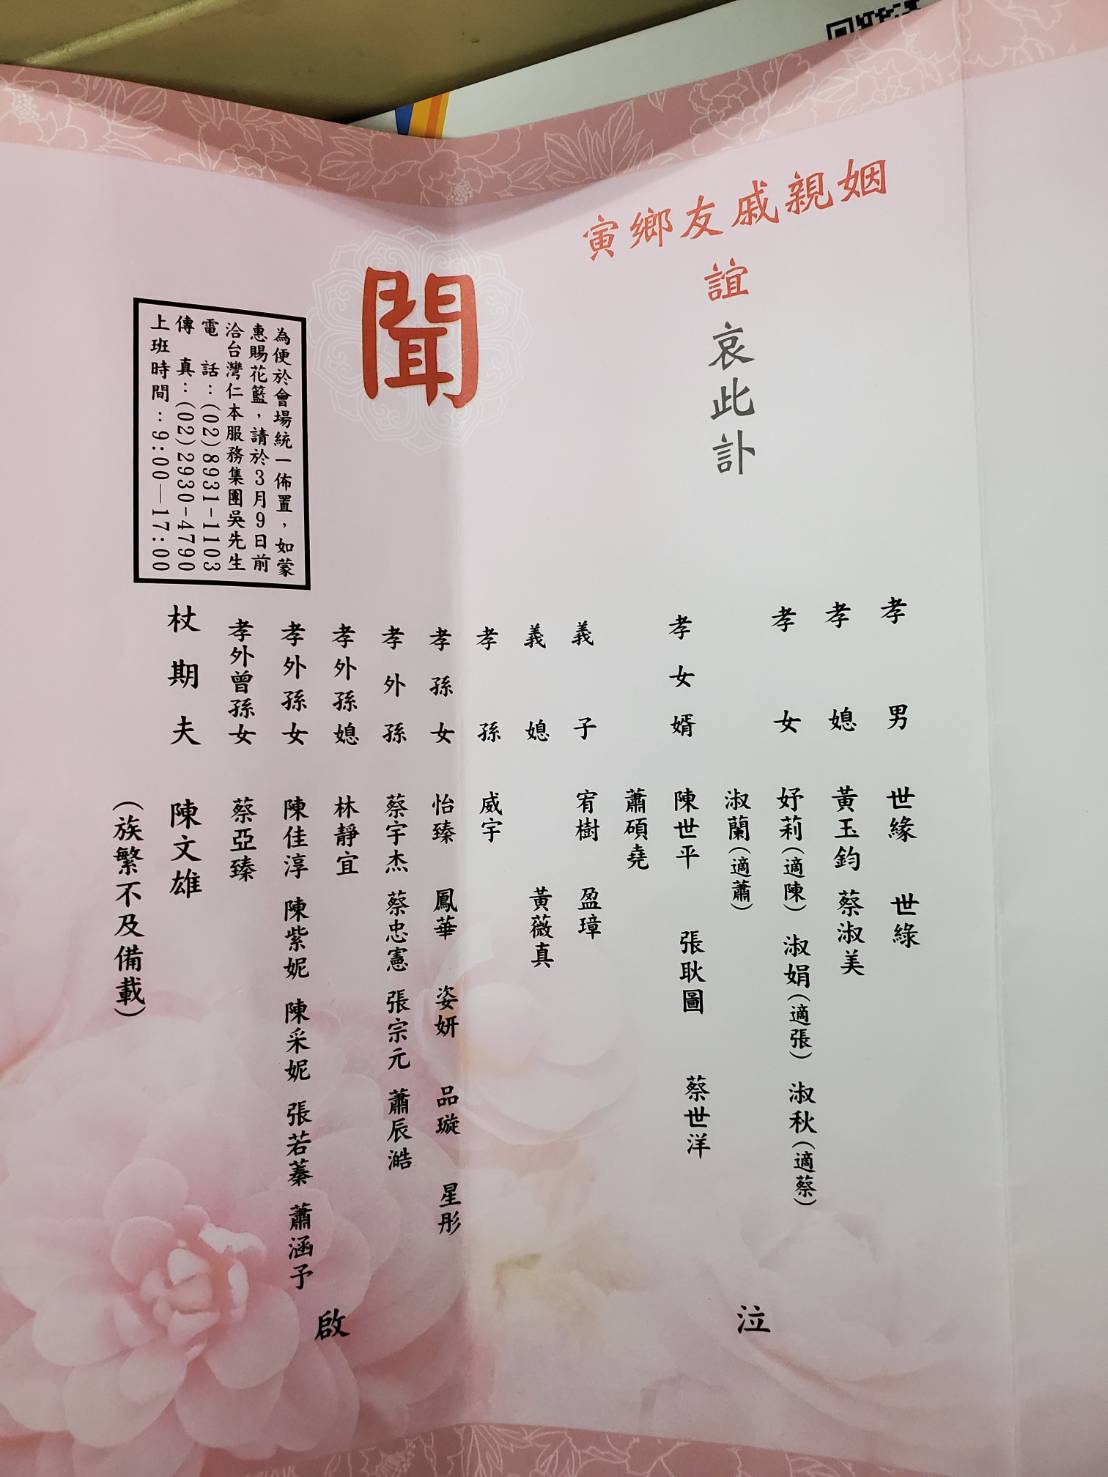 姻親戚友鄉寅
誼
哀此訃
聞
孝男 世緣 世綠
孝媳 黃玉鈞 蔡淑美
孝女 妤莉(適陳) 淑娟(適張) 淑秋(適蔡)
淑蘭(適蕭)
孝女婿 陳世平 張耿圖 蔡世洋
蕭碩堯
義子 宥樹 盈璋
義媳 黃薇真
孝孫 威宇
孝孫女 怡臻 鳳華 姿妍 品璇 星彤
孝外孫 蔡宇杰 蔡忠憲 張宗元 蕭辰澔
孝外孫媳 林靜宜
孝外孫女 陳佳淳 陳紫妮 陳采妮 張若蓁 蕭涵予
孝外曾孫女 蔡亞臻
杖期夫 陳文雄
(族繁不及備載)
泣
啟
為便於會場統一佈置，如蒙
惠賜花籃，請於3月9日前
洽台灣仁本服務集團吳先生
電話：(02)8931-1103
傳真：(02)2930-4790
上班時間：9:00—17:00